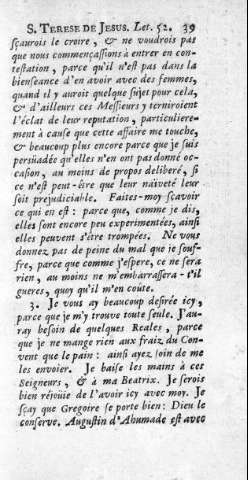 S. TERESE DE JESUS. Let. 52. 39
sçaurois le croire, & ne voudrois pas
que nous commençassions à entrer en con-
testation, parce qu'il n'est pas dans la
bienseance d'en avoir avec des femmes,
quand il y auroit quelque sujet pour cela,
& d'ailleurs ces Messieurs y terniroient
l'éclat de leur reputation, particuliere-
ment à cause que cette affaire me touche,
& beaucoup plus encore parce que je suis
persuadée qu'elles n'en ont pas donné oc-
casion, au moins de propos deliberé, si
ce n'est peut-être que leur naïveté leur
soit prejudiciable. Faites-moy sçavoir
ce qui en est : parce que, comme je dis,
elles sont encore peu experimentées, ainsi
elles peuvent s'être trompées. Ne vous
donnez pas de peine du mal que je souf-
fre, parce que comme j'espere, ce ne sera
rien, au moins ne m'embarrassera-t'il
gueres, quoy qu'il m'en coûte.
3. Je vous ay beaucoup desirée icy,
parce que je m'y trouve toute seule. J'au-
ray besoin de quelques Reales, parce
que je ne mange rien aux fraiz du Con-
vent que le pain : ainsi ayez soin de me
les envoier. Je baise les mains à ces
Seigneurs, & à ma Beatrix. Je serois
bien réjoüie de l'avoir icy avec moy. Je
sçay que Gregoire se porte bien : Dieu le
conserve. Augustin d'Ahumade est avec